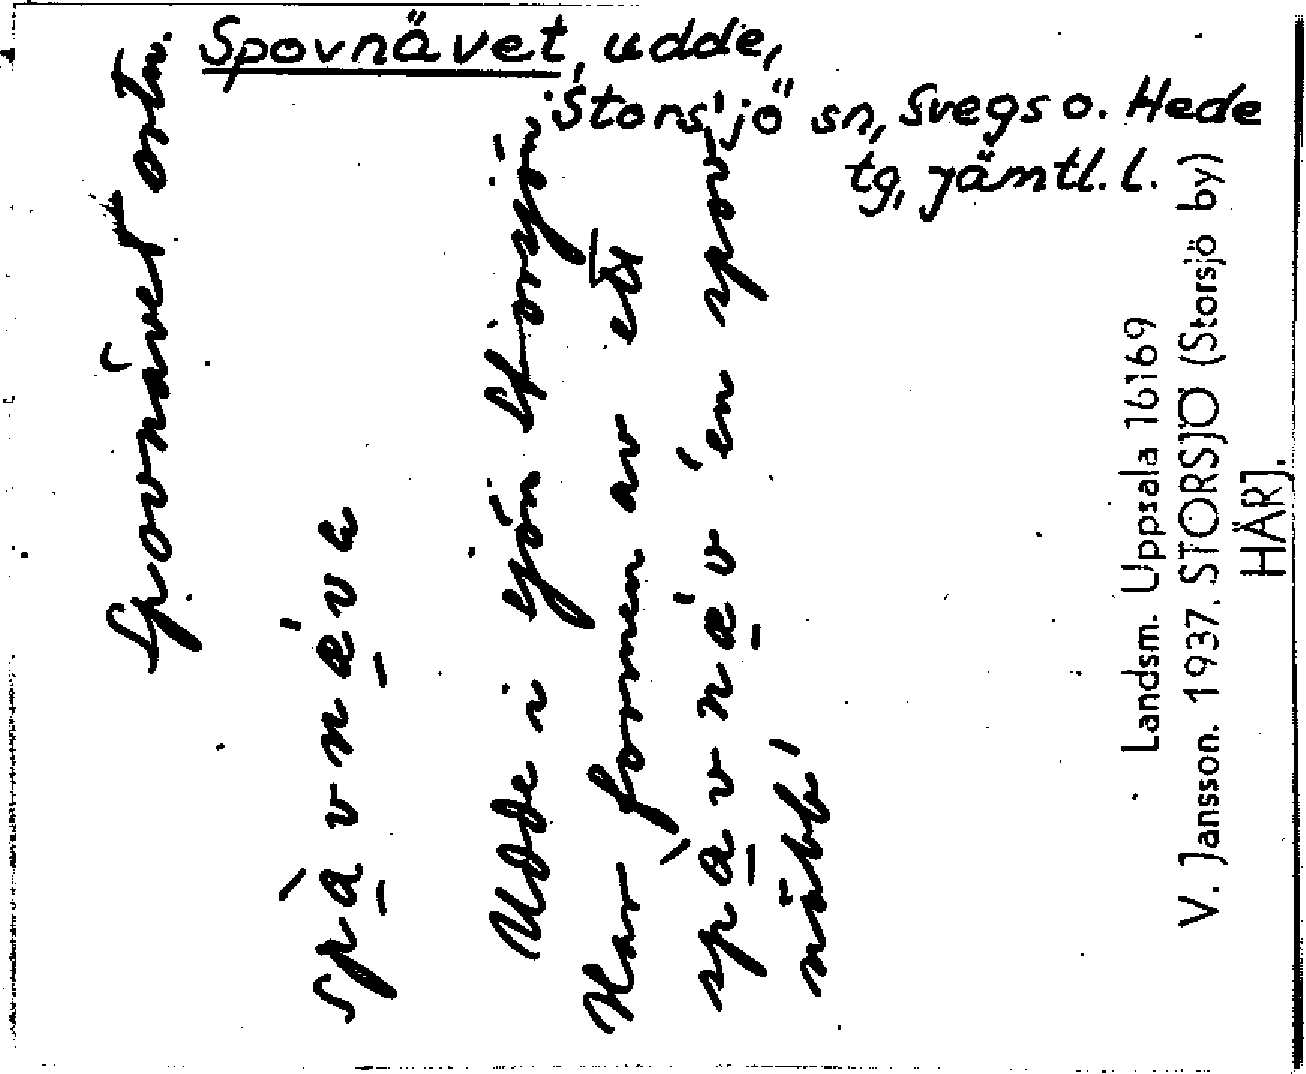 Spovnävet, udde,
Storsjö sn, Svegs o. Hede
tg, Jämtl. l.
Spovnävet ortn.
spàvnǽvɐ
Udde i sjön Storsjön
Har formen av ett
spàvnǽv 'en spov
näbb'
Landsm. Uppsala 16169
V. Jansson. 1937. STORSJÖ (Storsjö by)
HÄRJ.